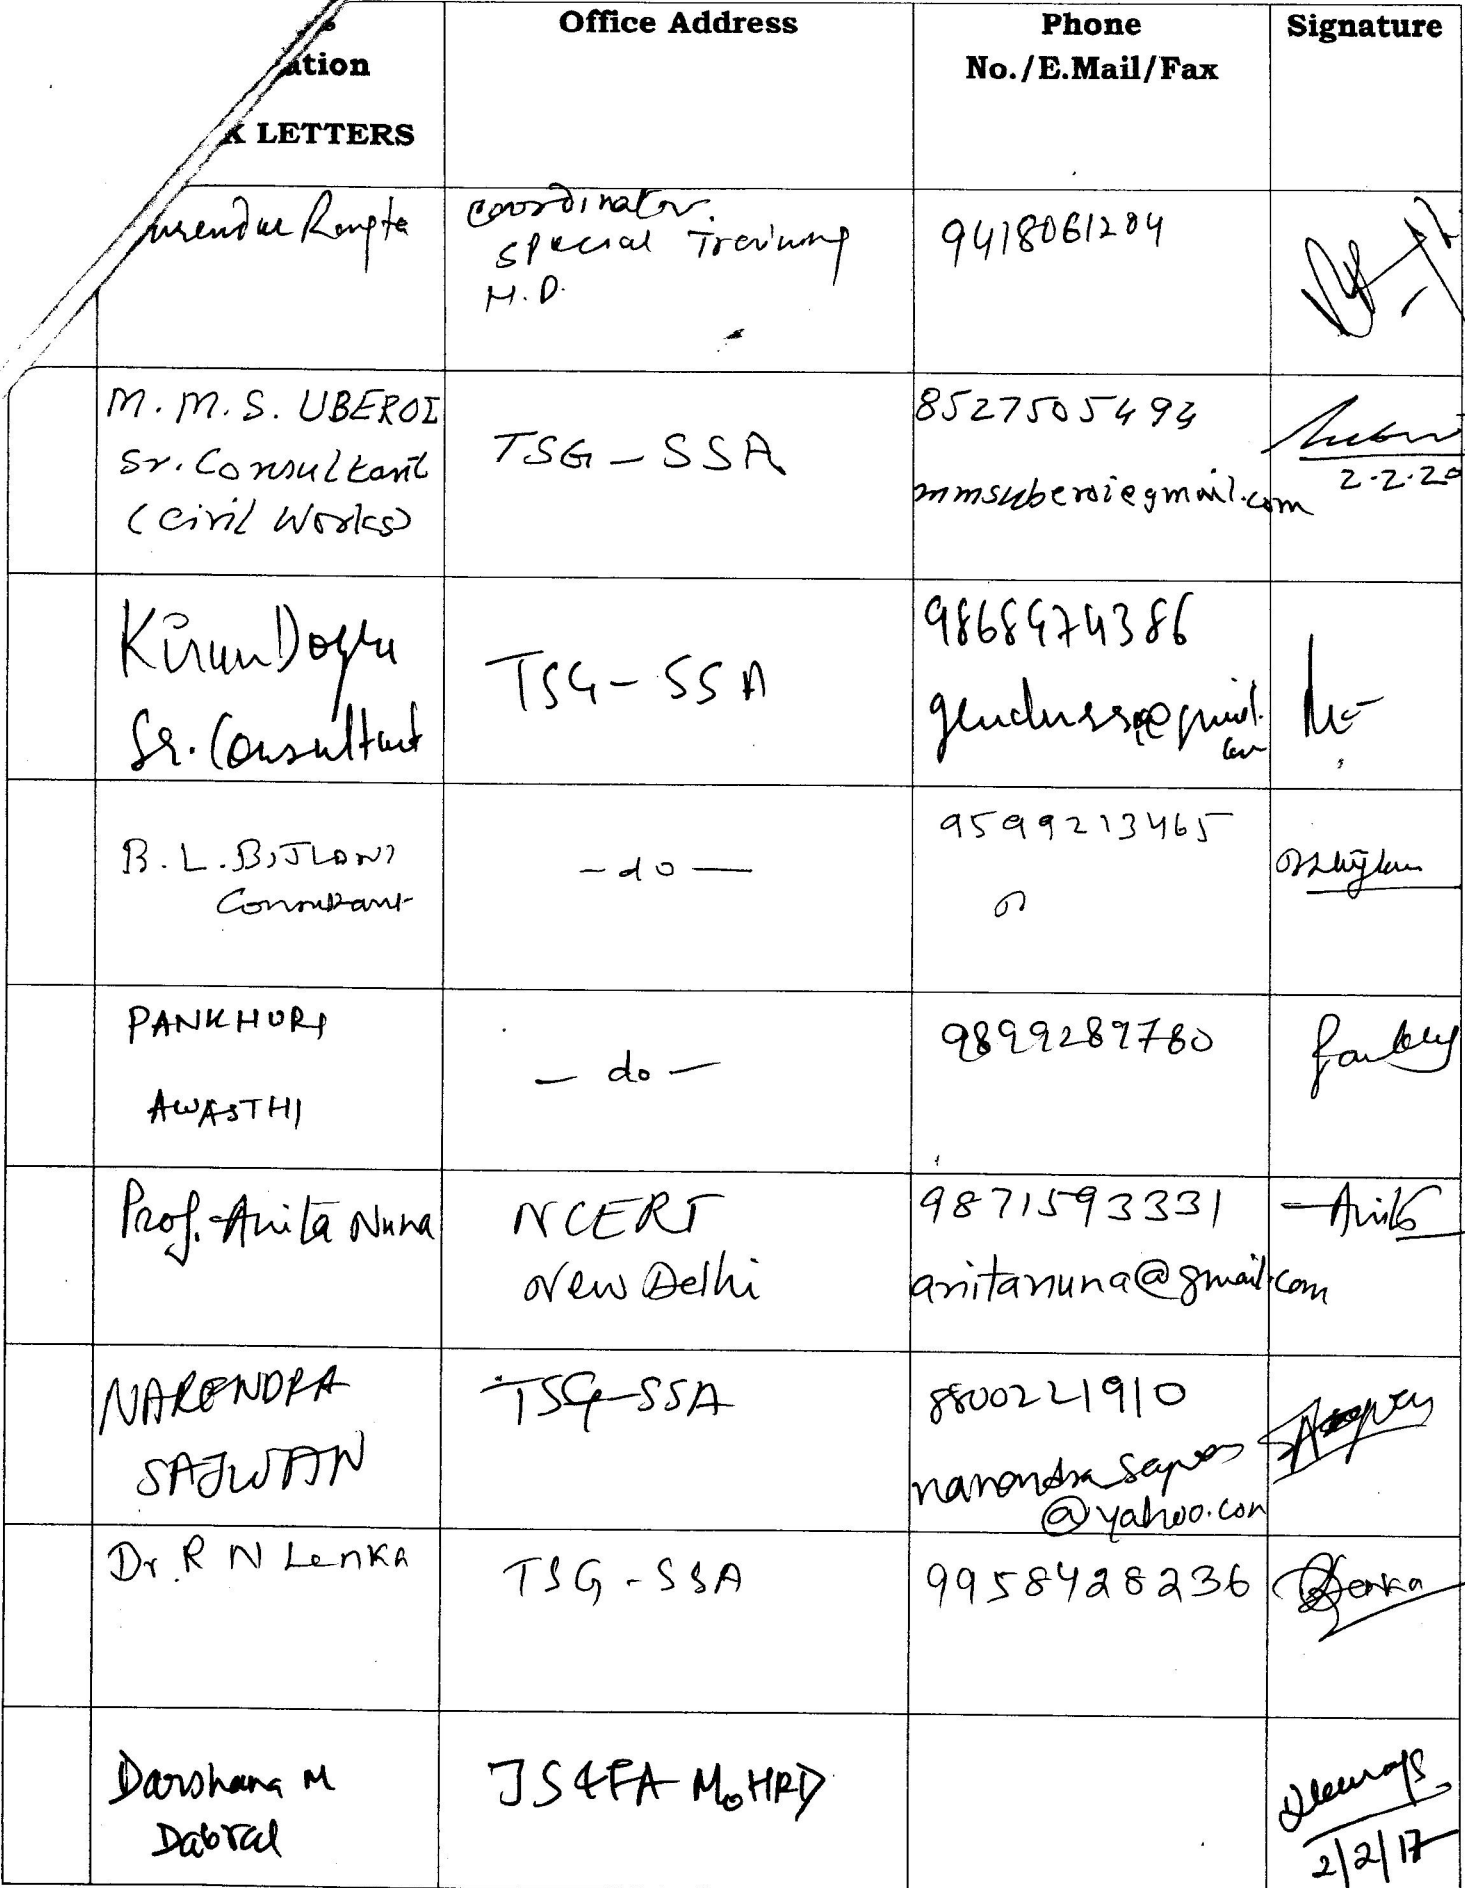 Office Address
Phone
No./E.Mail/Fax
Signature
LETTERS
Coordinator.
Special Training
9418061204
M.M.S. UBEROI
Sr. Consultant
(Civil Works)
TSG-SSA
8527505494
mmsuberoi@gmail.com
2.2.20
Kiran Dogra
Sr. Consultant
TSG-SSA
B.L. BIJLANI
Consultant
-do-
9599213465
PANKHURI
AWASTHI
- do -
9899289780
Prof. Anita Nuna
NCERT
New Delhi
9871593331
anitanuna@gmail.com
Anita
NARENDRA
SAJWAN
TSG-SSA
8800221910
@yahoo.com
Dr. R N Lenka
TSG-SSA
9958428236
Lenka
Darshana M
Dabral
JS&FA MoHRD
2/2/17